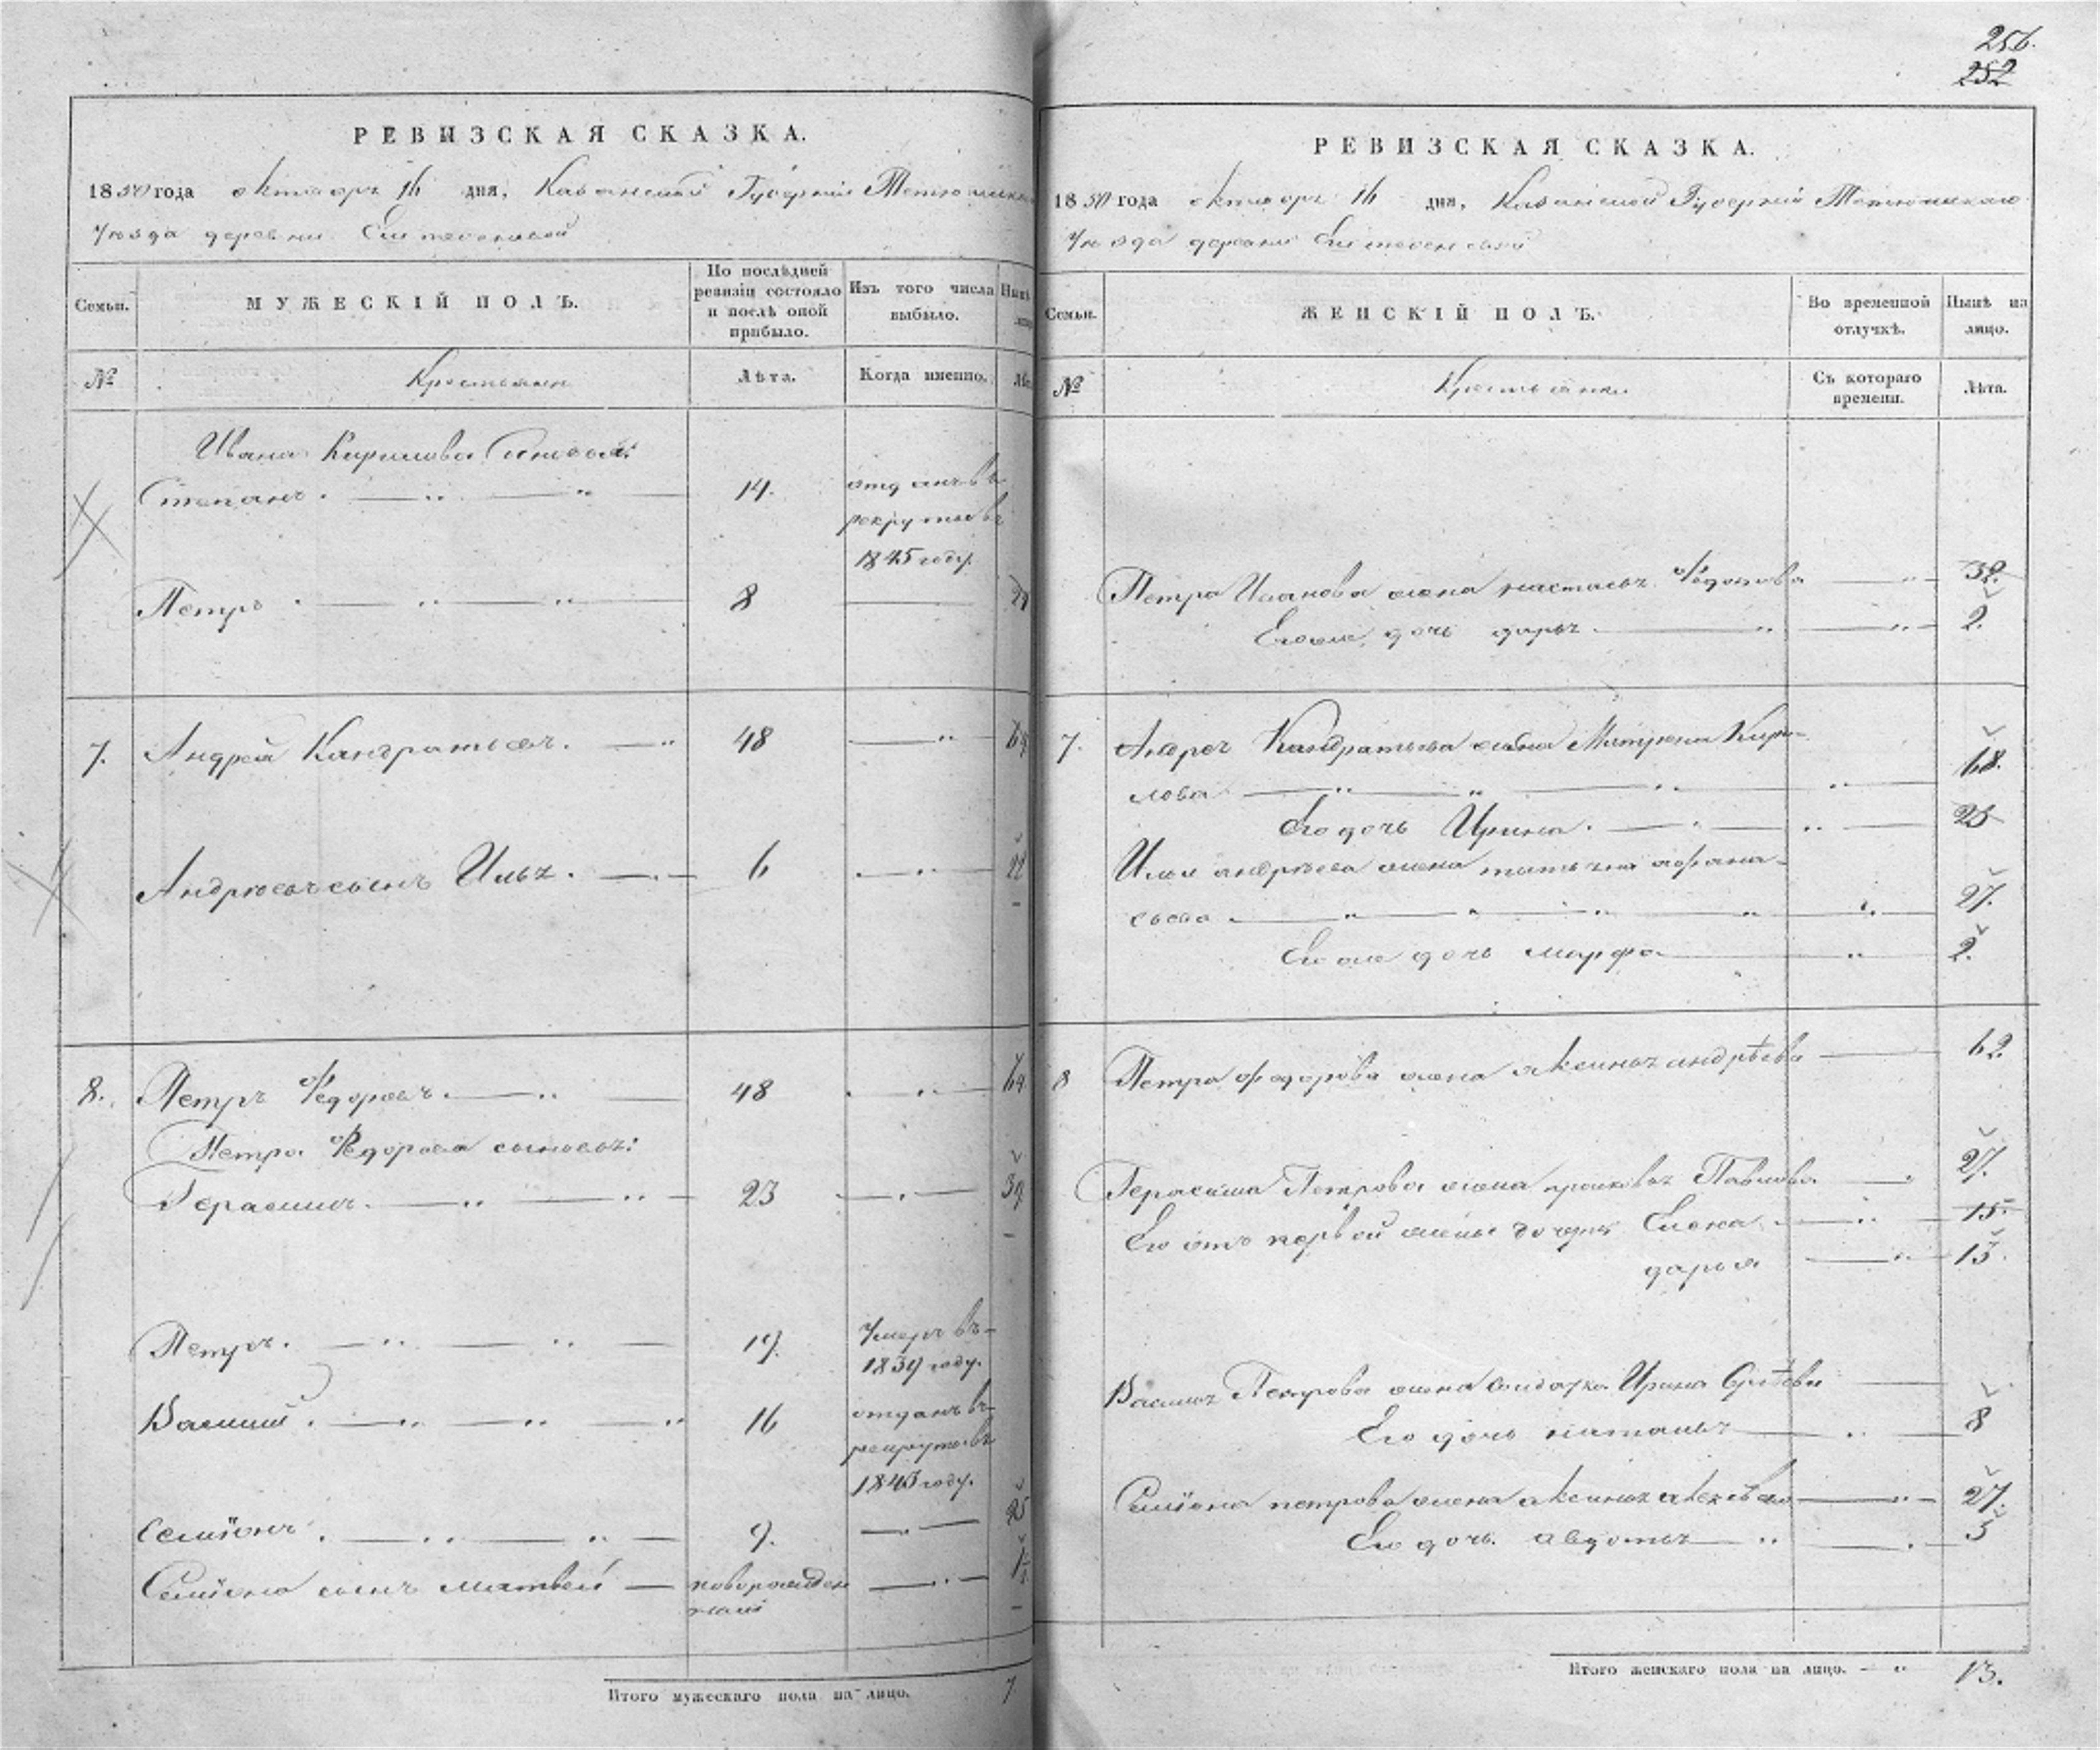 256.
252
РЕВИЗСКАЯ СКАЗКА.
1850 года октября 16 дня, Казанской Губернии Тетюшскаго
уѣзда деревни
Семьи.
МУЖЕСКІЙ ПОЛЪ.
По послѣдней ревизіи состояло и послѣ оной прибыло.
Изъ того числа выбыло.
Нынѣ
№
Крестьяне
Лѣта.
Когда именно.
Ивана Кирилова сыновья:
Степанъ 14. отданъ въ
рекруты въ
1845 году.
Петръ 8
7. Андрей Кандратьевъ. 48 69
Андреевъ сынъ Илья. 6 22
8. Петръ Федоровъ 48 69
Петра Федорова сыновья:
Герасимъ. 23 39
Петръ. 19. Умеръ въ
1839 году.
Василий. 16 отданъ въ
рекруты въ
1843 году.
Семіонъ. 9. 25
Семіона сынъ матвей новорожден
ный
Итого мужескаго пола на лицо. 7
РЕВИЗСКАЯ СКАЗКА.
1850 года октября 16 дня, Казанской Губерніи Тетюшскаго
уѣзда деревни
Семьи.
ЖЕНСКІЙ ПОЛЪ.
Во временной отлучкѣ.
Нынѣ на лицо.
№
Крестьянки
Съ котораго времени.
Лѣта.
Петра Иванова жена настасья Федотова
Евоже дочь дарья. 2.
7. Андрея Кандратьева жена Матрена Кири-
лова 68.
Ево дочь Ирина. 25
Илья андреева жена татьяна афана-
сьева 27.
Евоже дочь марфа 2.
8 Петра федорова жена аксинья андрѣева 62
Герасима Петрова жена Павлова 27.
Ево отъ первой жены дочери Елена 15.
дарья 13.
Василья Петрова жена солдатка Ирина
Ево дочь наталья 8
Семіона петрова жена аксинья 27.
Ево дочь. авдотья 5
Итого женскаго пола на лицо. 13.